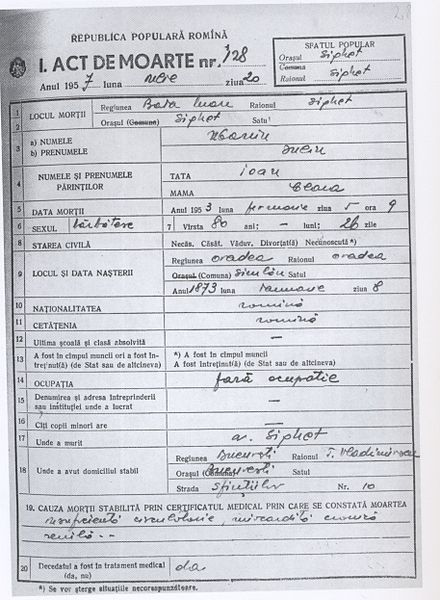 REPUBLICA POPULARĂ ROMÎNĂ
I. ACT DE MOARTE nr. 128
Anul 1957 luna ziua 20
SFATUL POPULAR
Orașul Sighet
Comuna
Raionul Sighet
1 LOCUL MORȚII Regiunea Baia Mare Raionul Sighet
2 Orașul (Comuna) Sighet Satul
3 a) NUMELE Maniu
b) PRENUMELE Iuliu
4 NUMELE ȘI PRENUMELE PĂRINȚILOR TATA Ioan
MAMA Clara
5 DATA MORȚII Anul 1953 luna februarie ziua 5 ora 9
6 SEXUL bărbătesc 7 Vîrsta 80 ani; — luni; 26 zile
8 STAREA CIVILĂ Necăs. Căsăt. Văduv. Divorțat(ă) Necunoscută*)
9 LOCUL ȘI DATA NAȘTERII Regiunea Oradea Raionul Oradea
Orașul (Comuna) Satul
Anul 1873 luna Ianuarie ziua 8
10 NAȚIONALITATEA romînă
11 CETĂȚENIA romînă
12 Ultima școală și clasă absolvită —
13 A fost în cîmpul muncii ori a fost întreținut(ă) (de Stat sau de altcineva) *) A fost în cîmpul muncii
A fost întreținut(ă) (de Stat sau de altcineva)
14 OCUPAȚIA fără ocupație
15 Denumirea și adresa întreprinderii sau instituției unde a lucrat —
16 Cîți copii minori are —
17 Unde a murit Sighet
18 Unde a avut domiciliul stabil Regiunea București Raionul T. Vladimirescu
Orașul (Comuna) București Satul
Strada Sfinților Nr. 10
19. CAUZA MORȚII STABILITĂ PRIN CERTIFICATUL MEDICAL PRIN CARE SE CONSTATĂ MOARTEA
insuficiență circulatorie miocardită cronică
senilă
20 Decedatul a fost în tratament medical (da, nu) da
*) Se vor șterge situațiile necorespunzătoare.